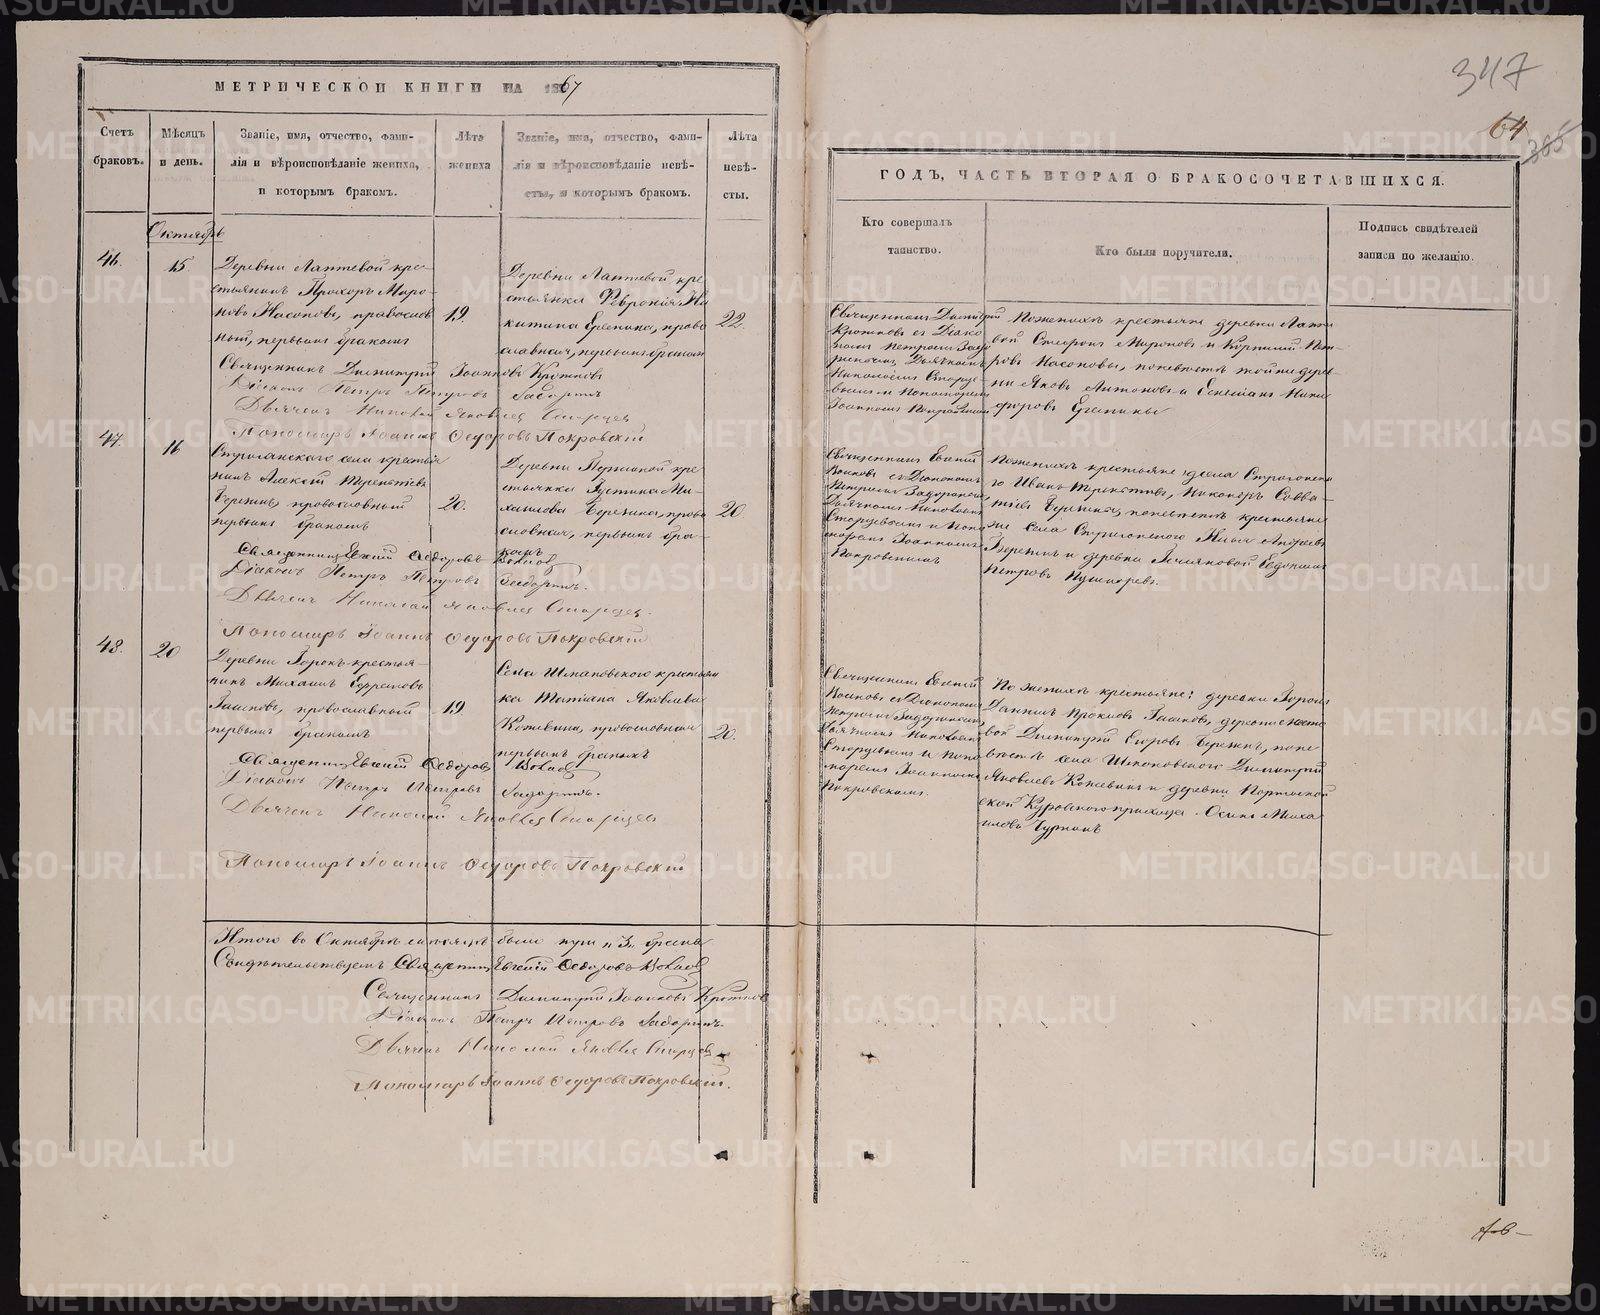 МЕТРИЧЕСКОЙ КНИГИ НА 1867
Счетъ браковъ.
Мѣсяцъ и день.
Званіе, имя, отчество, фами-
лія и вѣроисповѣданіе жениха,
и которымъ бракомъ.
Лѣта жениха
Званіе, имя, отчество, фами-
лія и вѣроисповѣданіе невѣ-
сты, и которымъ бракомъ.
Лѣта невѣ-
сты.
Октябрь
46.
15
Деревни Лаптевой кре-
стьянинъ Прохоръ Миро-
новъ Насоновъ, православ
ный, первымъ бракомъ
19.
Деревни Лаптевой кре
стьянка Феврония Ни
китина Ерепина, право
славная, первымъ бракомъ
22.
Священникъ Димитрий Іоанновъ Кротковъ
Діаконъ Петръ Петровъ Задоринъ
Дьячекъ Николай Яковлев Старцев
Пономарь Іоаннъ Федоровъ Покровскій
47.
16
Строганскаго села крестья
нинъ Алексѣй Терентьевъ
Березинъ, православный
первымъ бракомъ
20.
кре
стьянка Устинья Ми-
хаилова Березина, право
славная, первымъ бра-
комъ
20
Священникъ Евгений Федоровъ Волков
Діаконъ Петръ Петровъ Задоринъ.
Дьячекъ Николай Яковлев Старцев.
Пономарь Іоаннъ Федоровъ Покровский
48.
20
Деревни Горокъ крестья-
нинъ Михаилъ Ефремовъ
православный
первымъ бракомъ
19.
Села Шипановского крестьян
ка Татіана Яковлева
Кожевина, православная
первымъ бракомъ
20.
Священникъ Евгений Федоровъ Волков
Діаконъ Петръ Петровъ Задоринъ.
Дьячекъ Николай Яковлев Старцев
Пономарь Іоаннъ Федоровъ Покровский
Итого въ Октябрѣ мѣсяцѣ было три № 3. брака
Свидѣтельствуемъ Священникъ Евгений Федоровъ Волков
Священникъ Димитрий Іоанновъ Кротков
Діаконъ Петръ Петровъ Задоринъ.
Дьячекъ Николай Яковлев Старцев
Пономарь Іоаннъ Федоровъ Покровский.
347
64
ГОДЪ, ЧАСТЬ ВТОРАЯ О БРАКОСОЧЕТАВШИХСЯ.
Кто совершалъ
таинство.
Кто были поручители.
Подпись свидѣтелей
записи по желанію.
Священникъ Димитрій
Кротковъ съ Діако
номъ Петромъ Задо
ринымъ, Дьячкомъ
Николаемъ Старце-
вымъ и Пономаремъ
Іоанномъ Покровскимъ
По женихѣ крестьяне деревни Лапте
вой Мироновъ и Пет-
ровъ Насоновы, по невѣстѣ той же дерев-
ни Яковъ Антоновъ и Ники
форовъ Ерепины
Священникъ Евгеній
Волковъ съ Діакономъ
Петромъ Задоринымъ,
Дьячкомъ Николаемъ
Старцевымъ и Поно
маремъ Іоанномъ
Покровскимъ
По женихѣ крестьяне села Строганска
го Иванъ Терентьевъ, Никаноръ Савва-
тіевъ Березины, по невѣстѣ крестьяне
же села Строганского Илья Андреевъ
Березинъ и деревни
Петровъ Пушкаревъ.
Священникъ Евгеній
Волковъ съ Діакономъ
Петромъ Задоринымъ,
Дьячкомъ Николаемъ
Старцевымъ и Поно
маремъ Іоанномъ
Покровскимъ.
По женихѣ крестьяне: деревни Горокъ
Даниилъ деревни
Димитрій Егоровъ Березинъ, по не
вѣстѣ села Шипановского Димитрий
Яковлевъ Кожевинъ и деревни
Куровского прихода Осипъ Миха
иловъ
METRIKI.GASO-URAL.RU